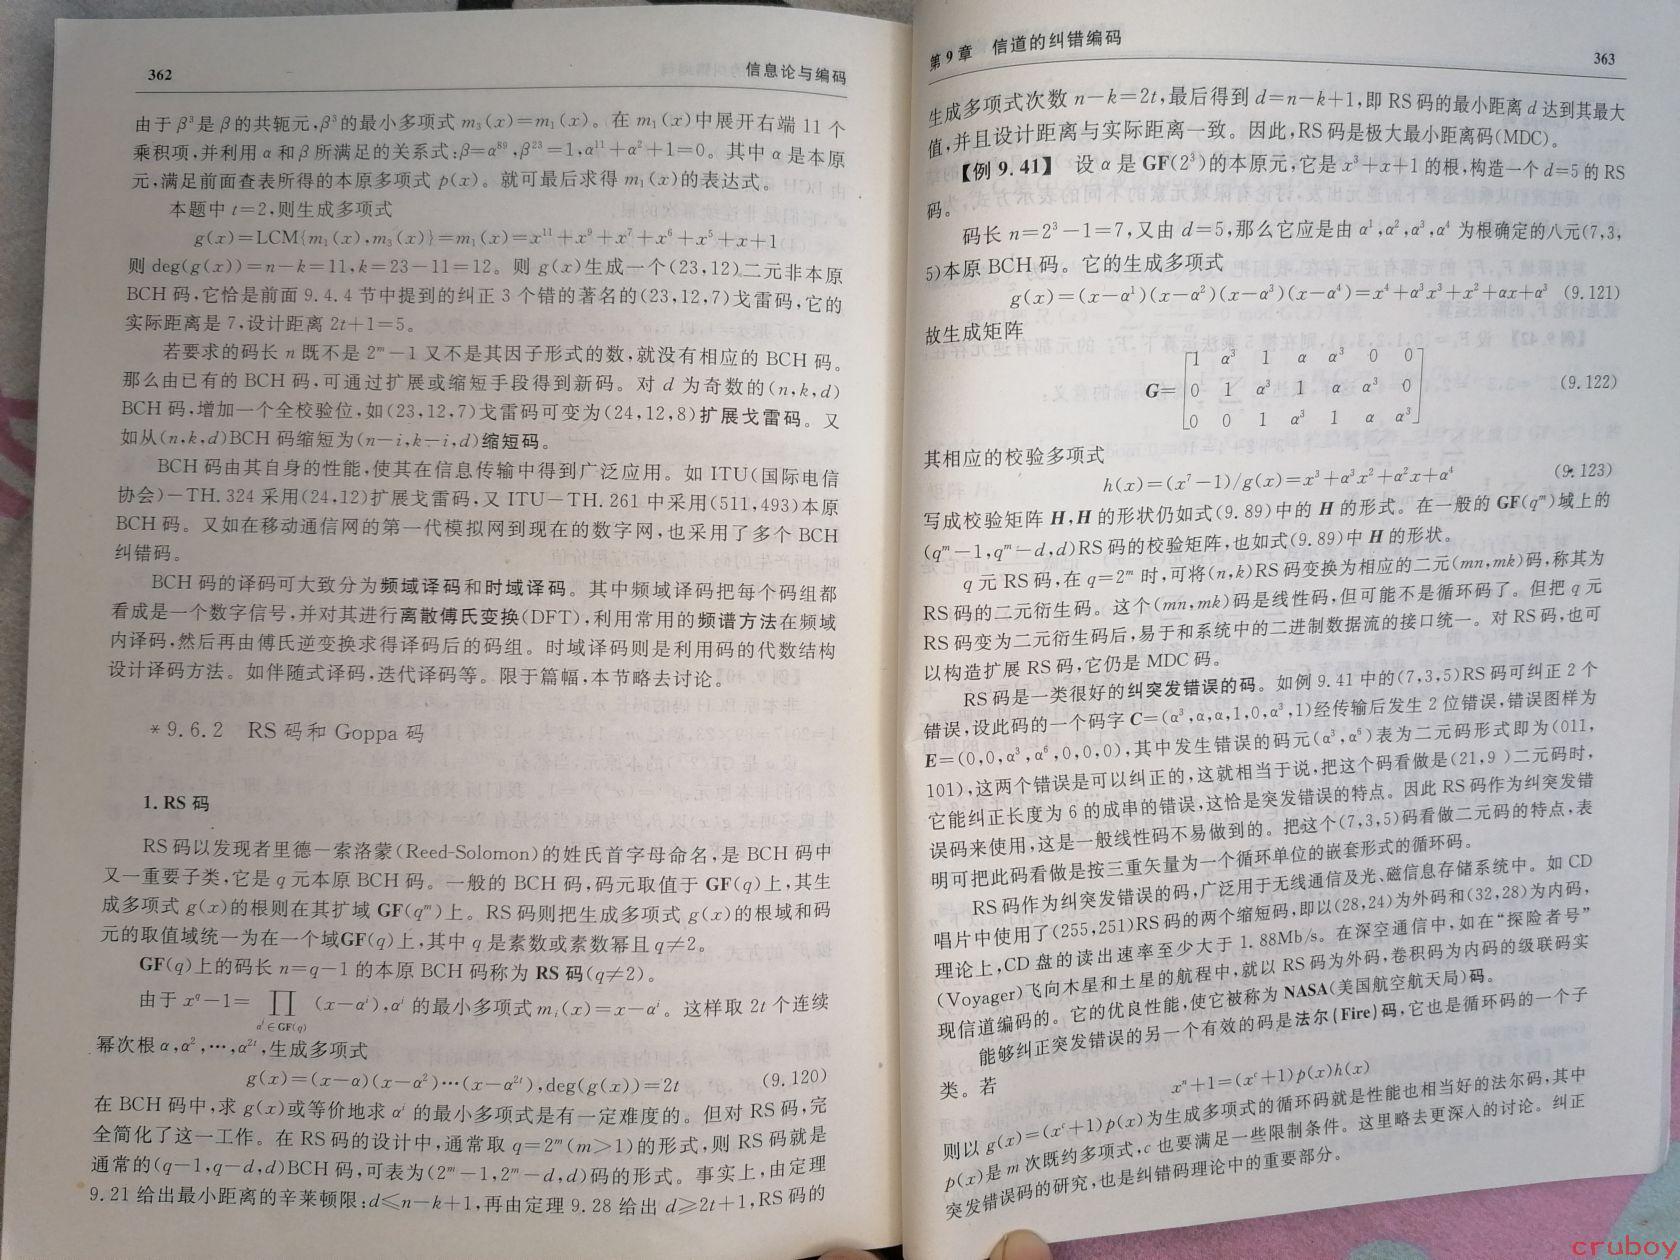 362
信息论与编码
由于β³是β的共轭元,β³的最小多项式 m₃(x)=m₁(x)。在 m₁(x)中展开右端 11 个
乘积项,并利用α和β所满足的关系式:β=α⁸⁹,β²³=1,α¹¹+α²+1=0。其中α是本原
元,满足前面查表所得的本原多项式 p(x)。就可最后求得 m₁(x)的表达式。
本题中 t=2,则生成多项式
g(x)=LCM{m₁(x),m₃(x)}=m₁(x)=x¹¹+x⁹+x⁷+x⁶+x⁵+x+1
则 deg(g(x))=n-k=11,k=23-11=12。则 g(x)生成一个(23,12)二元非本原
BCH 码,它恰是前面 9.4.4 节中提到的纠正 3 个错的著名的(23,12,7)戈雷码,它的
实际距离是 7,设计距离 2t+1=5。
若要求的码长 n 既不是 2ᵐ-1 又不是其因子形式的数,就没有相应的 BCH 码。
那么由已有的 BCH 码,可通过扩展或缩短手段得到新码。对 d 为奇数的(n,k,d)
BCH 码,增加一个全校验位,如(23,12,7)戈雷码可变为(24,12,8)扩展戈雷码。又
如从(n,k,d)BCH 码缩短为(n-i,k-i,d)缩短码。
BCH 码由其自身的性能,使其在信息传输中得到广泛应用。如 ITU(国际电信
协会)-TH.324 采用(24,12)扩展戈雷码,又 ITU-TH.261 中采用(511,493)本原
BCH 码。又如在移动通信网的第一代模拟网到现在的数字网,也采用了多个 BCH
纠错码。
BCH 码的译码可大致分为频域译码和时域译码。其中频域译码把每个码组都
看成是一个数字信号,并对其进行离散傅氏变换(DFT),利用常用的频谱方法在频域
内译码,然后再由傅氏逆变换求得译码后的码组。时域译码则是利用码的代数结构
设计译码方法。如伴随式译码,迭代译码等。限于篇幅,本节略去讨论。
*9.6.2 RS 码和 Goppa 码
1. RS 码
RS 码以发现者里德—索洛蒙(Reed-Solomon)的姓氏首字母命名,是 BCH 码中
又一重要子类,它是 q 元本原 BCH 码。一般的 BCH 码,码元取值于 GF(q)上,其生
成多项式 g(x)的根则在其扩域 GF(qᵐ)上。RS 码则把生成多项式 g(x)的根域和码
元的取值域统一为在一个域GF(q)上,其中 q 是素数或素数幂且 q≠2。
GF(q)上的码长 n=q-1 的本原 BCH 码称为 RS 码(q≠2)。
由于 x^q-1= ∏ (x-αⁱ),αⁱ 的最小多项式 mᵢ(x)=x-αⁱ。这样取 2t 个连续
αⁱ∈GF(q)
幂次根 α,α²,⋯,α²ᵗ,生成多项式
g(x)=(x-α)(x-α²)⋯(x-α²ᵗ),deg(g(x))=2t (9.120)
在 BCH 码中,求 g(x)或等价地求 αⁱ 的最小多项式是有一定难度的。但对 RS 码,完
全简化了这一工作。在 RS 码的设计中,通常取 q=2ᵐ(m>1)的形式,则 RS 码就是
通常的(q-1,q-d,d)BCH 码,可表为(2ᵐ-1,2ᵐ-d,d)码的形式。事实上,由定理
9.21 给出最小距离的辛莱顿限:d≤n-k+1,再由定理 9.28 给出 d≥2t+1,RS 码的
第 9 章 信道的纠错编码
363
生成多项式次数 n-k=2t,最后得到 d=n-k+1,即 RS 码的最小距离 d 达到其最大
值,并且设计距离与实际距离一致。因此,RS 码是极大最小距离码(MDC)。
【例 9.41】 设 α 是 GF(2³)的本原元,它是 x³+x+1 的根,构造一个 d=5 的 RS
码。
码长 n=2³-1=7,又由 d=5,那么它应是由 α¹,α²,α³,α⁴ 为根确定的八元(7,3,
5)本原 BCH 码。它的生成多项式
g(x)=(x-α¹)(x-α²)(x-α³)(x-α⁴)=x⁴+α³x³+x²+αx+α³ (9.121)
故生成矩阵
1 α³ 1 α α³ 0 0
G= 0 1 α³ 1 α α³ 0 (9.122)
0 0 1 α³ 1 α α³
其相应的校验多项式
h(x)=(x⁷-1)/g(x)=x³+α³x²+α²x+α⁴ (9.123)
写成校验矩阵 H,H 的形状仍如式(9.89)中的 H 的形式。在一般的 GF(qᵐ)域上的
(qᵐ-1,qᵐ-d,d)RS 码的校验矩阵,也如式(9.89)中 H 的形状。
q 元 RS 码,在 q=2ᵐ 时,可将(n,k)RS 码变换为相应的二元(mn,mk)码,称其为
RS 码的二元衍生码。这个(mn,mk)码是线性码,但可能不是循环码了。但把 q 元
RS 码变为二元衍生码后,易于和系统中的二进制数据流的接口统一。对 RS 码,也可
以构造扩展 RS 码,它仍是 MDC 码。
RS 码是一类很好的纠突发错误的码。如例 9.41 中的(7,3,5)RS 码可纠正 2 个
错误,设此码的一个码字 C=(α³,α,α,1,0,α³,1)经传输后发生 2 位错误,错误图样为
E=(0,0,α³,α⁶,0,0,0),其中发生错误的码元(α³,α⁶)表为二元码形式即为(011,
101),这两个错误是可以纠正的,这就相当于说,把这个码看做是(21,9)二元码时,
它能纠正长度为 6 的成串的错误,这恰是突发错误的特点。因此 RS 码作为纠突发错
误码来使用,这是一般线性码不易做到的。把这个(7,3,5)码看做二元码的特点,表
明可把此码看做是按三重矢量为一个循环单位的嵌套形式的循环码。
RS 码作为纠突发错误的码,广泛用于无线通信及光、磁信息存储系统中。如 CD
唱片中使用了(255,251)RS 码的两个缩短码,即以(28,24)为外码和(32,28)为内码,
理论上,CD 盘的读出速率至少大于 1.88Mb/s。在深空通信中,如在“探险者号”
(Voyager)飞向木星和土星的航程中,就以 RS 码为外码,卷积码为内码的级联码实
现信道编码的。它的优良性能,使它被称为 NASA(美国航空航天局)码。
能够纠正突发错误的另一个有效的码是法尔(Fire)码,它也是循环码的一个子
类。若
xⁿ+1=(xᶜ+1)p(x)h(x)
则以 g(x)=(xᶜ+1)p(x)为生成多项式的循环码就是性能也相当好的法尔码,其中
p(x)是 m 次既约多项式,c 也要满足一些限制条件。这里略去更深入的讨论。纠正
突发错误码的研究,也是纠错码理论中的重要部分。
cruboy